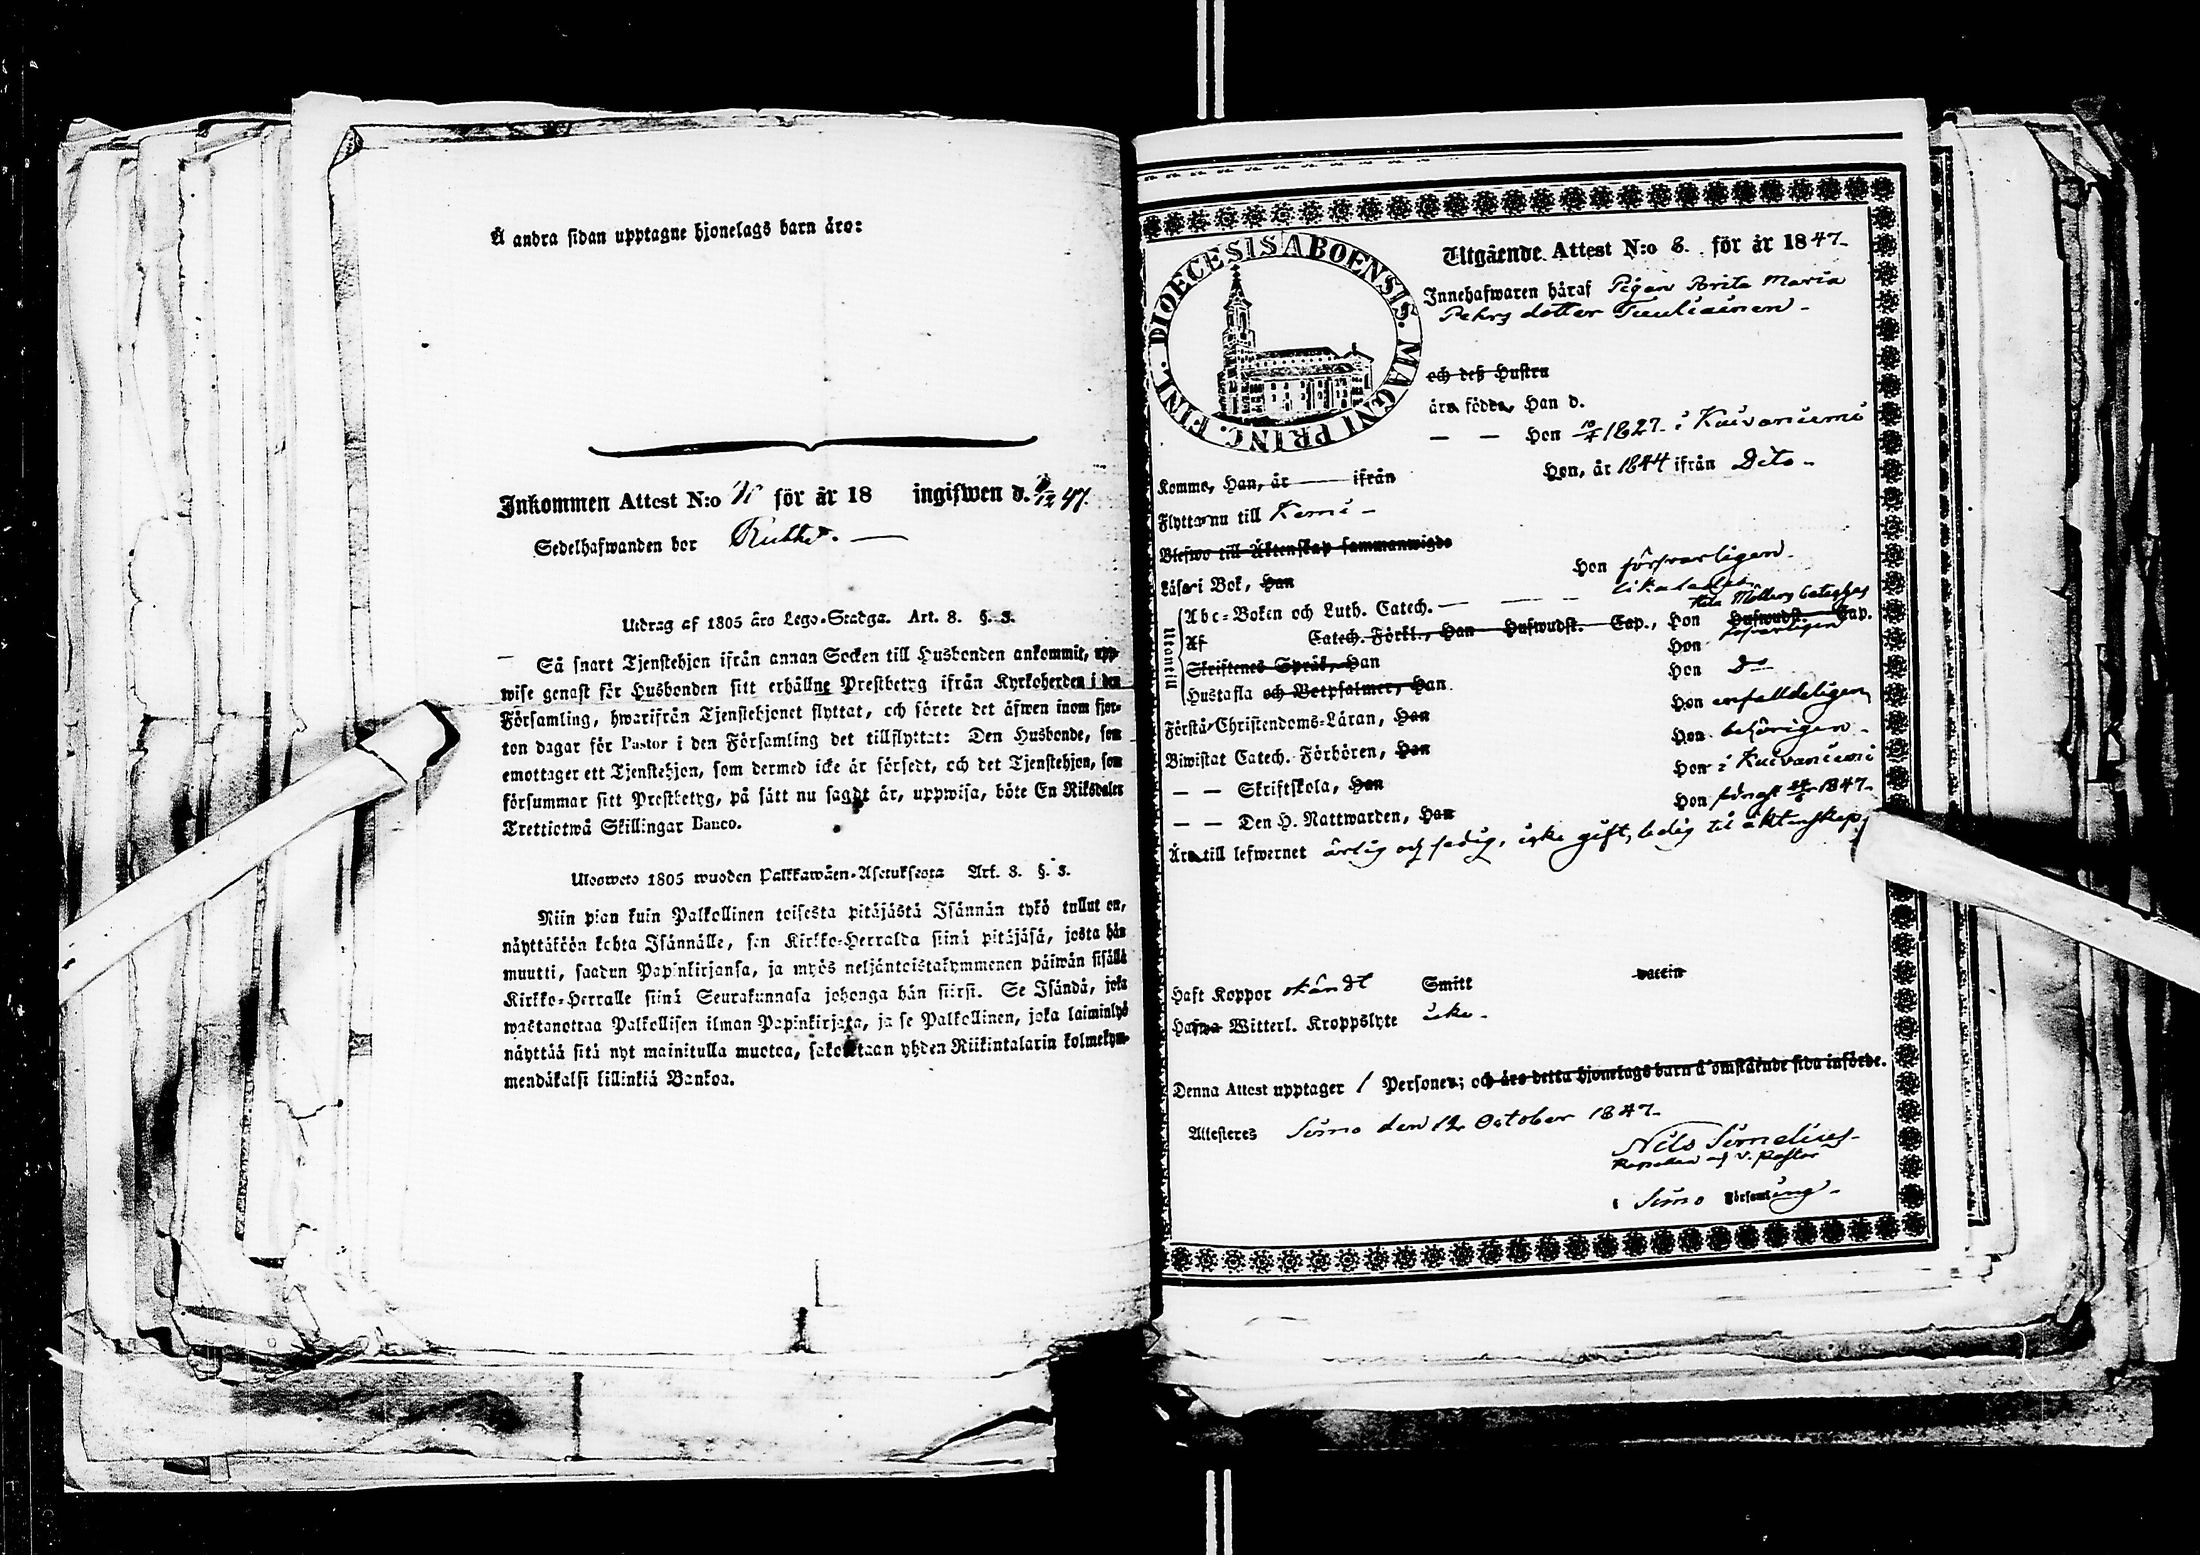 Å andra sidan upptagne hjonelags barn äro:
Inkommen Attest N:o för år 18 ingifwen d. /12 47.
Sedelhafwanden bor
Utdrag af 1805 års Lego-Stadga. Art. 8. §. 3.
Så snart Tjenstehjon ifrån annan Socken till Husbonden ankommit, upp-
wise genast för Husbonden sitt erhållne Prestbetyg ifrån Kyrkoherden i den
Församling, hwarifrån Tjenstehjonet flyttat, och förete det äfwen inom fjor-
ton dagar för Pastor i den Församling det tillflyttat: Den Husbonde, som
emottager ett Tjenstehjon, som dermed icke är försedt, och det Tjenstehjon, som
försummar sitt Prestbetyg, på sätt nu sagdt är, uppwisa, böte En Riksdaler
Trettiotwå Skillingar Banco.
Ulosweto 1805 wuoden Palkkawäen-Asetuksesta Art. 8. §. 3.
Niin pian kuin Palkollinen toisesta pitäjästä Isännän tykö tullut on,
näyttäköön kohta Isännälle, sen Kirkko-Herralda siinä pitäjäsä, josta hän
muutti, saadun Papinkirjansa, ja myös neljäntoistakymmenen päiwän sisällä
Kirkko-Herralle siinä Seurakunnasa johonga hän siirsi. Se Isändä, joka
wastanottaa Palkollisen ilman Papinkirjata, ja se Palkollinen, joka laiminlyö
näyttää sitä nyt mainitulla muotoa, sakoitetaan yhden Riikintalarin kolmekym-
mendäkaksi killinkiä Bankoa.
DIOECESIS ABOENSIS. MAGNI PRINC. FINL.
Utgående Attest N:o 8. för år 1847.
Innehafwaren häraf Pigan Brita Maria
Pehrs dotter Tuuliainen -
och deß Hustru
äro födde, Han d.
— — Hon 10/4 1827. i Kuivaniemi
Komme, Han, år — ifrån Hon, år 1844 ifrån Dito -
Flytta nu till Kemi -
Blefwo till Äktenskap sammanwigde
Läsa i Bok, Han Hon försvarligen.
Utantill
Abc-Boken och Luth. Catech. — — — likaledes
Af Catech. Förkl., Han Hufwudst. Cap., Hon Hufwudst. Cap.
Skriftenes Språk, Han Hon försvarligen
Hustafla och Botpsalmer, Han Hon Do
Förstå Christendoms-Läran, Han Hon enfalldeligen
Biwistat Catech. Förhören, Han Hon behörigen -
— — Skriftskola, Han Hon i Kuivaniemi
— — Den H. Nattwarden, Han Hon sednast 24/6 1847.
Äro till lefwernet ärlig och sedig, icke gift, ledig til äktenskap;
Haft Koppor okändt Smitt vaccin
Hafwa Witterl. Kroppslyte icke -
Denna Attest upptager 1 Personer; och äro detta hjonelags barn å omstående sida införde.
Attesteres Simo den 12 October 1847.
Nils Simelius
Kapellan och v. Pastor
i Simo Församling -